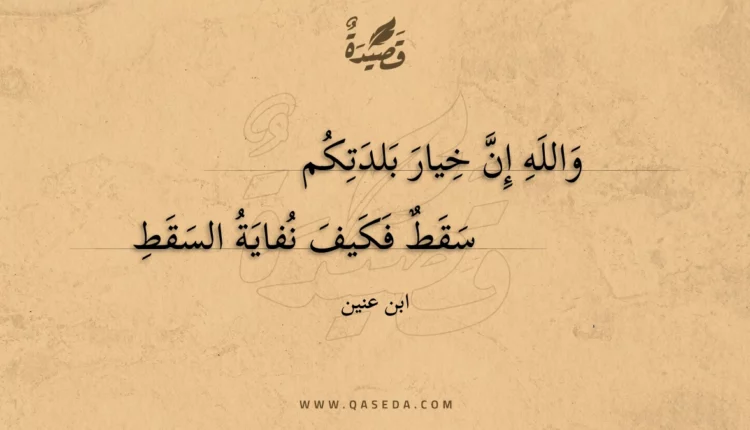 قَصِيدَةٌ
وَاللَهِ إِنَّ خِيارَ بَلدَتِكُم
سَقَطٌ فَكَيفَ نُفايَةُ السَقَطِ
ابن عنين
WWW.QASEDA.COM